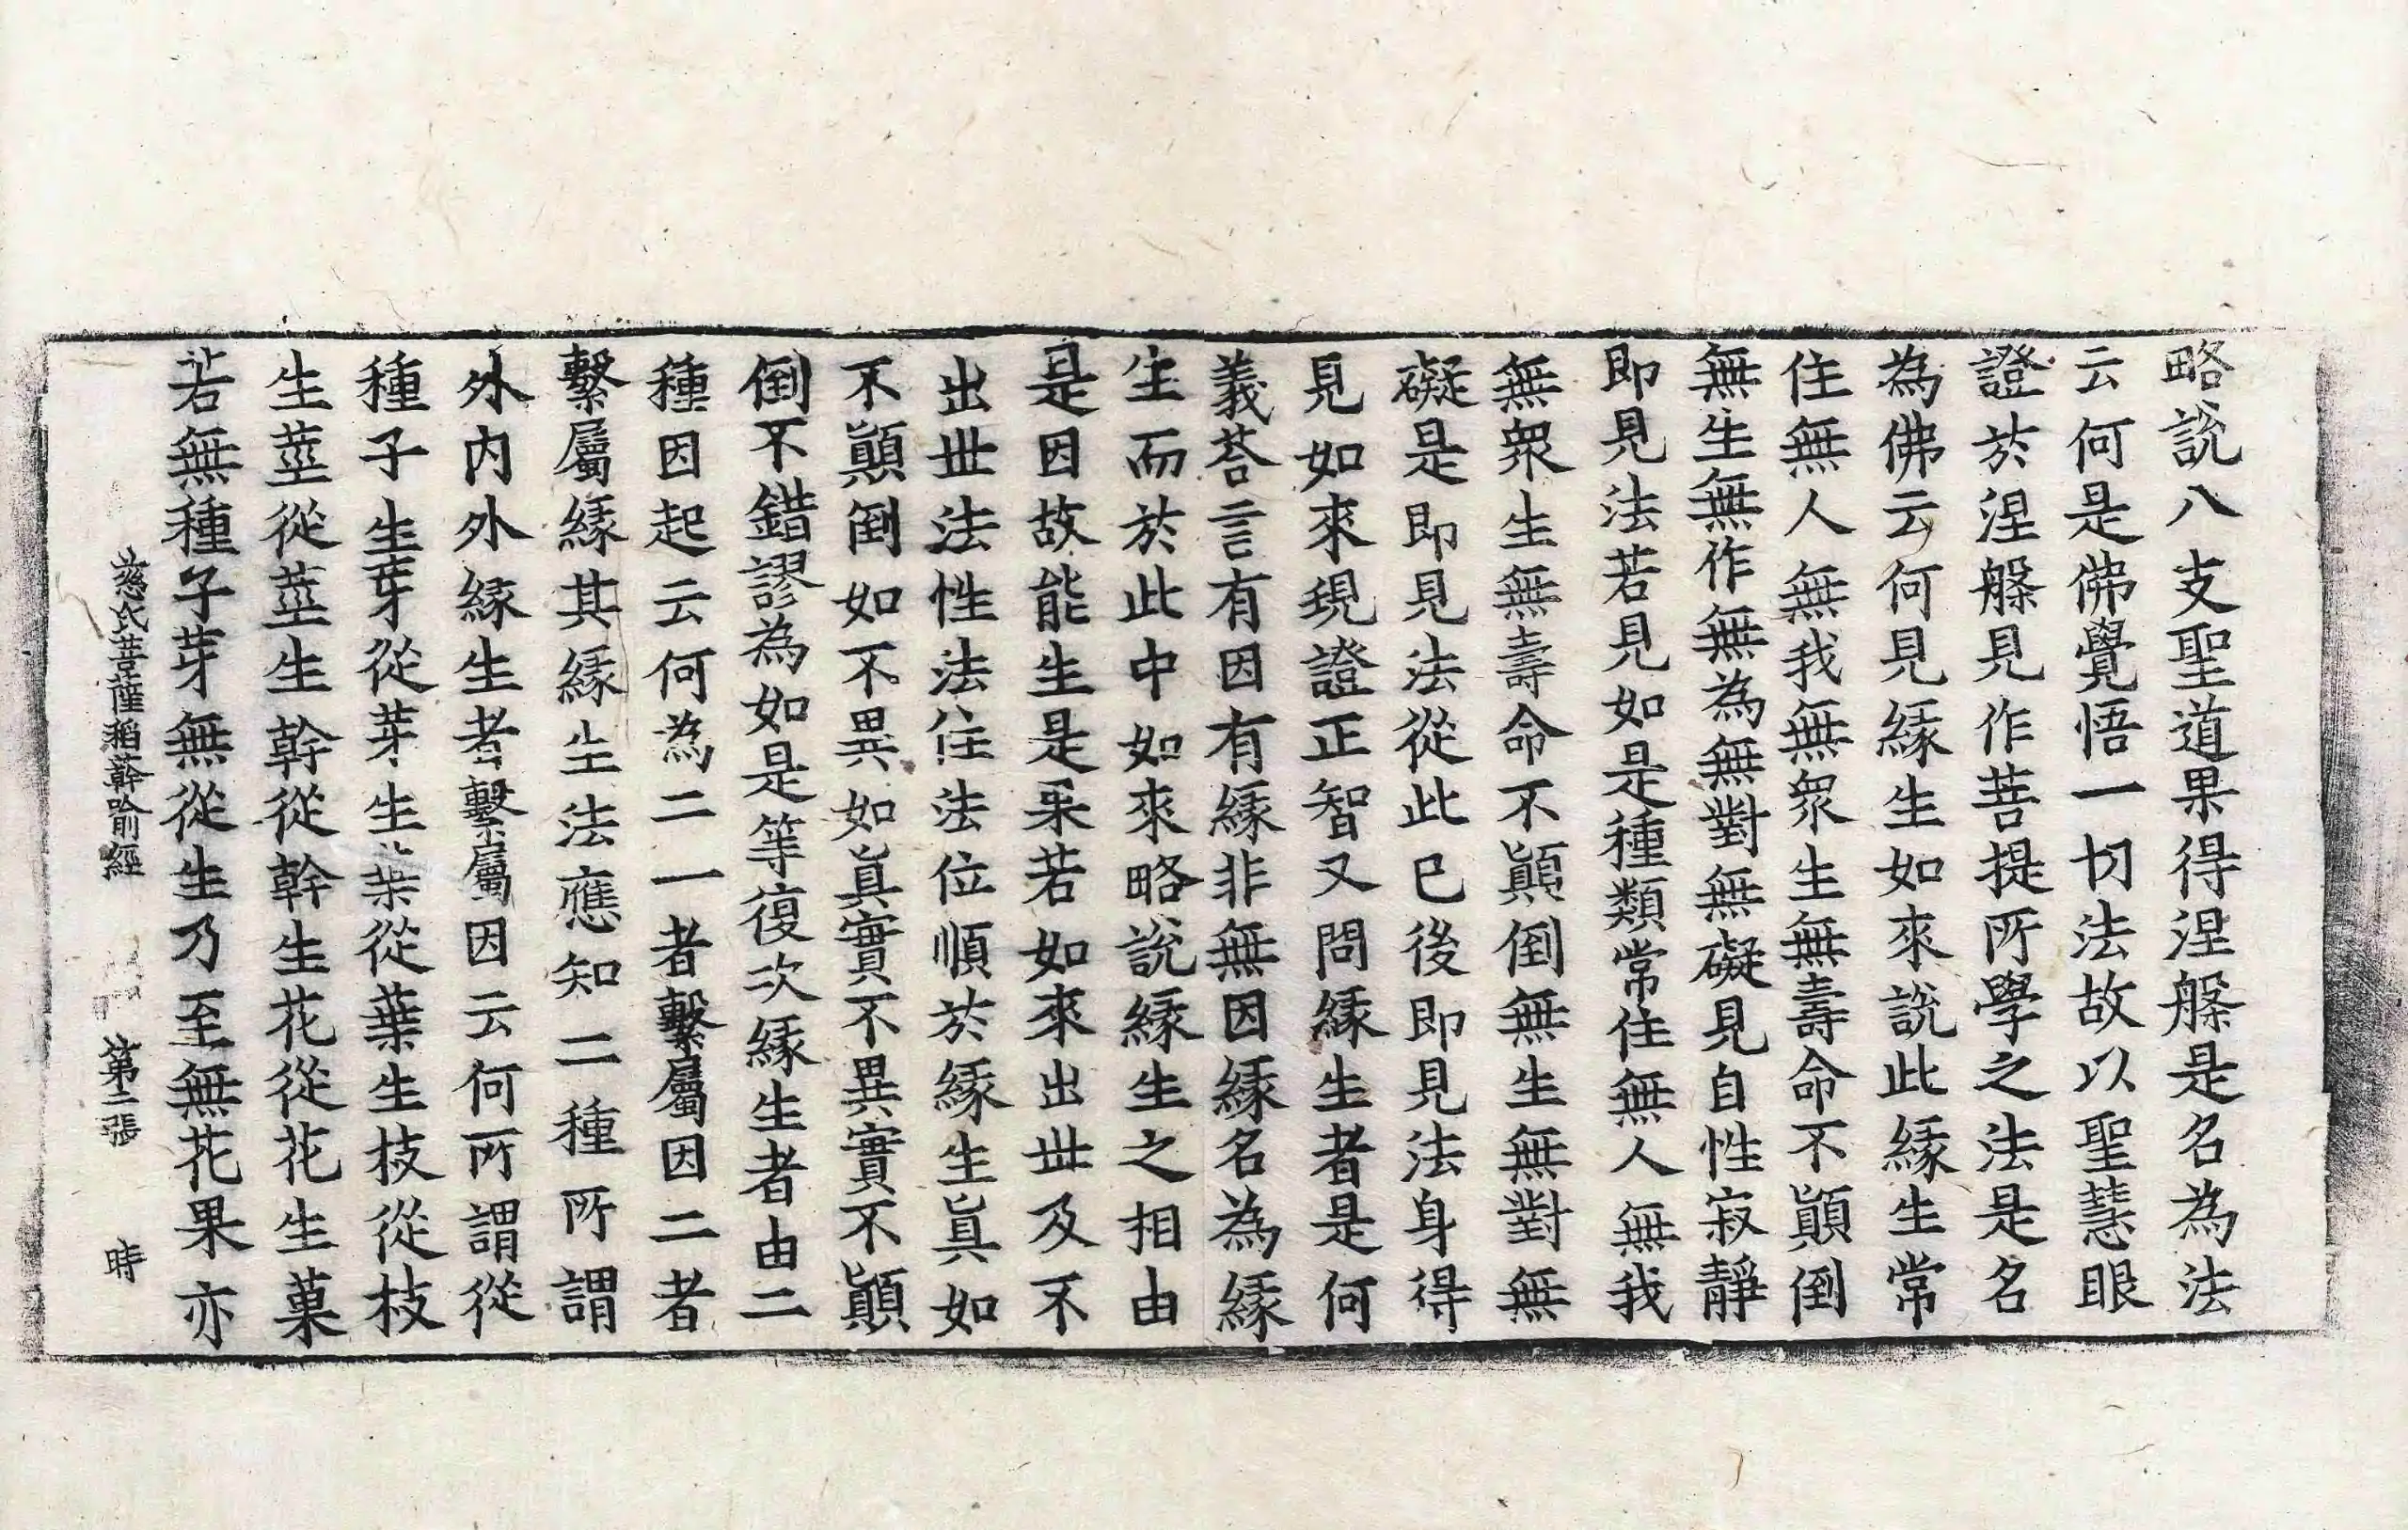 略說八支聖道果得涅槃是名為法
云何是佛覺悟一切法故以聖慧眼
證於涅槃見作菩提所學之法是名
為佛云何見緣生如來說此緣生常
住無人無我無衆生無壽命不顚倒
無生無作無為無對無礙見自性寂靜
即見法若見如是種類常住無人無我
無衆生無壽命不顚倒無生無對無
礙是即見法從此已後即見法身得
見如來現證正智又問緣生者是何
義荅言有因有緣非無因緣名為緣
生而於此中如來略說緣生之相由
是因故能生是果若如來出世及不
出世法性法住法位順於緣生眞如
不顚倒如不異如眞實不異實不顚
倒不錯謬為如是等復次緣生者由二
種因起云何為二一者繫屬因二者
繫屬緣其緣生法應知二種所謂
外內外緣生者繫屬因云何所謂從
種子生芽從芽生葉從葉生枝從枝
生莖從莖生幹從幹生花從花生菓
若無種子芽無從生乃至無花果亦
慈氏菩薩稻𦼮喻經 第二張 時